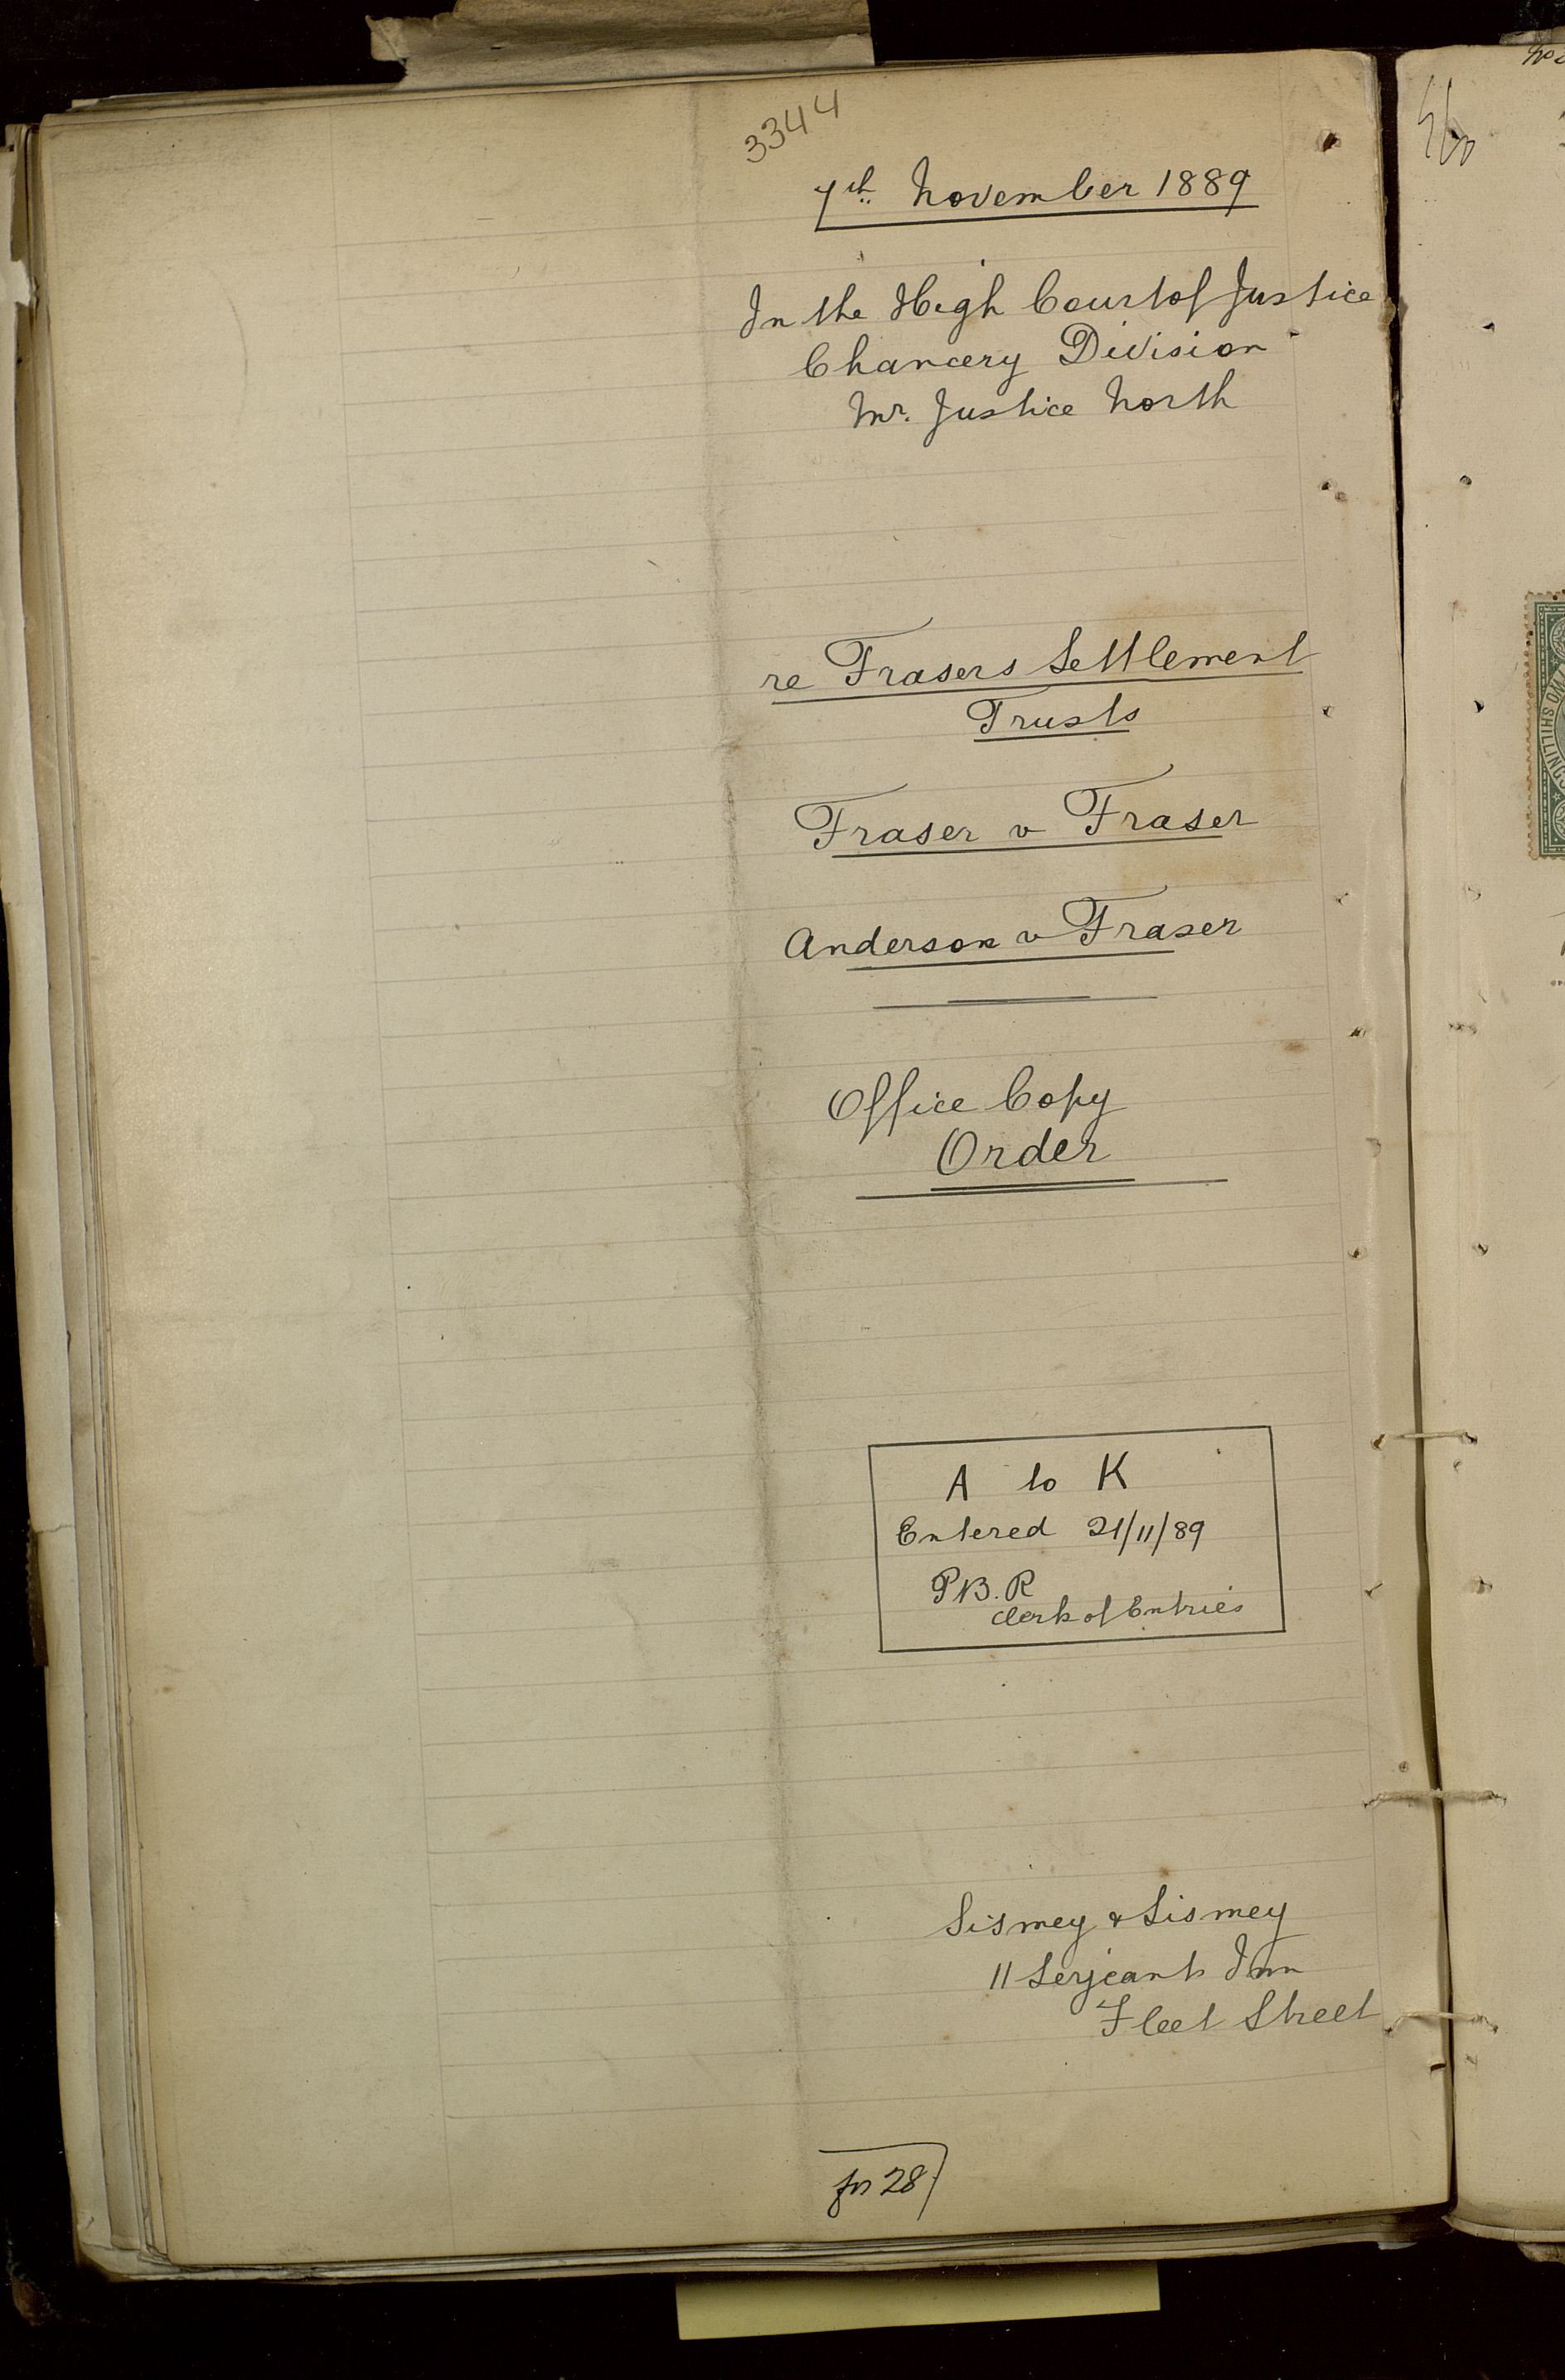 3344
7th November 1889
In the High Court of Justice
Chancery Division
Mr. Justice North
re Frasers Settlement
Trusts
Fraser v Fraser
Anderson v Fraser
Office Copy
Order
A to K
Entered 21/11/89
P.B.R
Clerk of Entries
Sismey & Sismey
11 Serjeants Inn
Fleet Street
fos 28